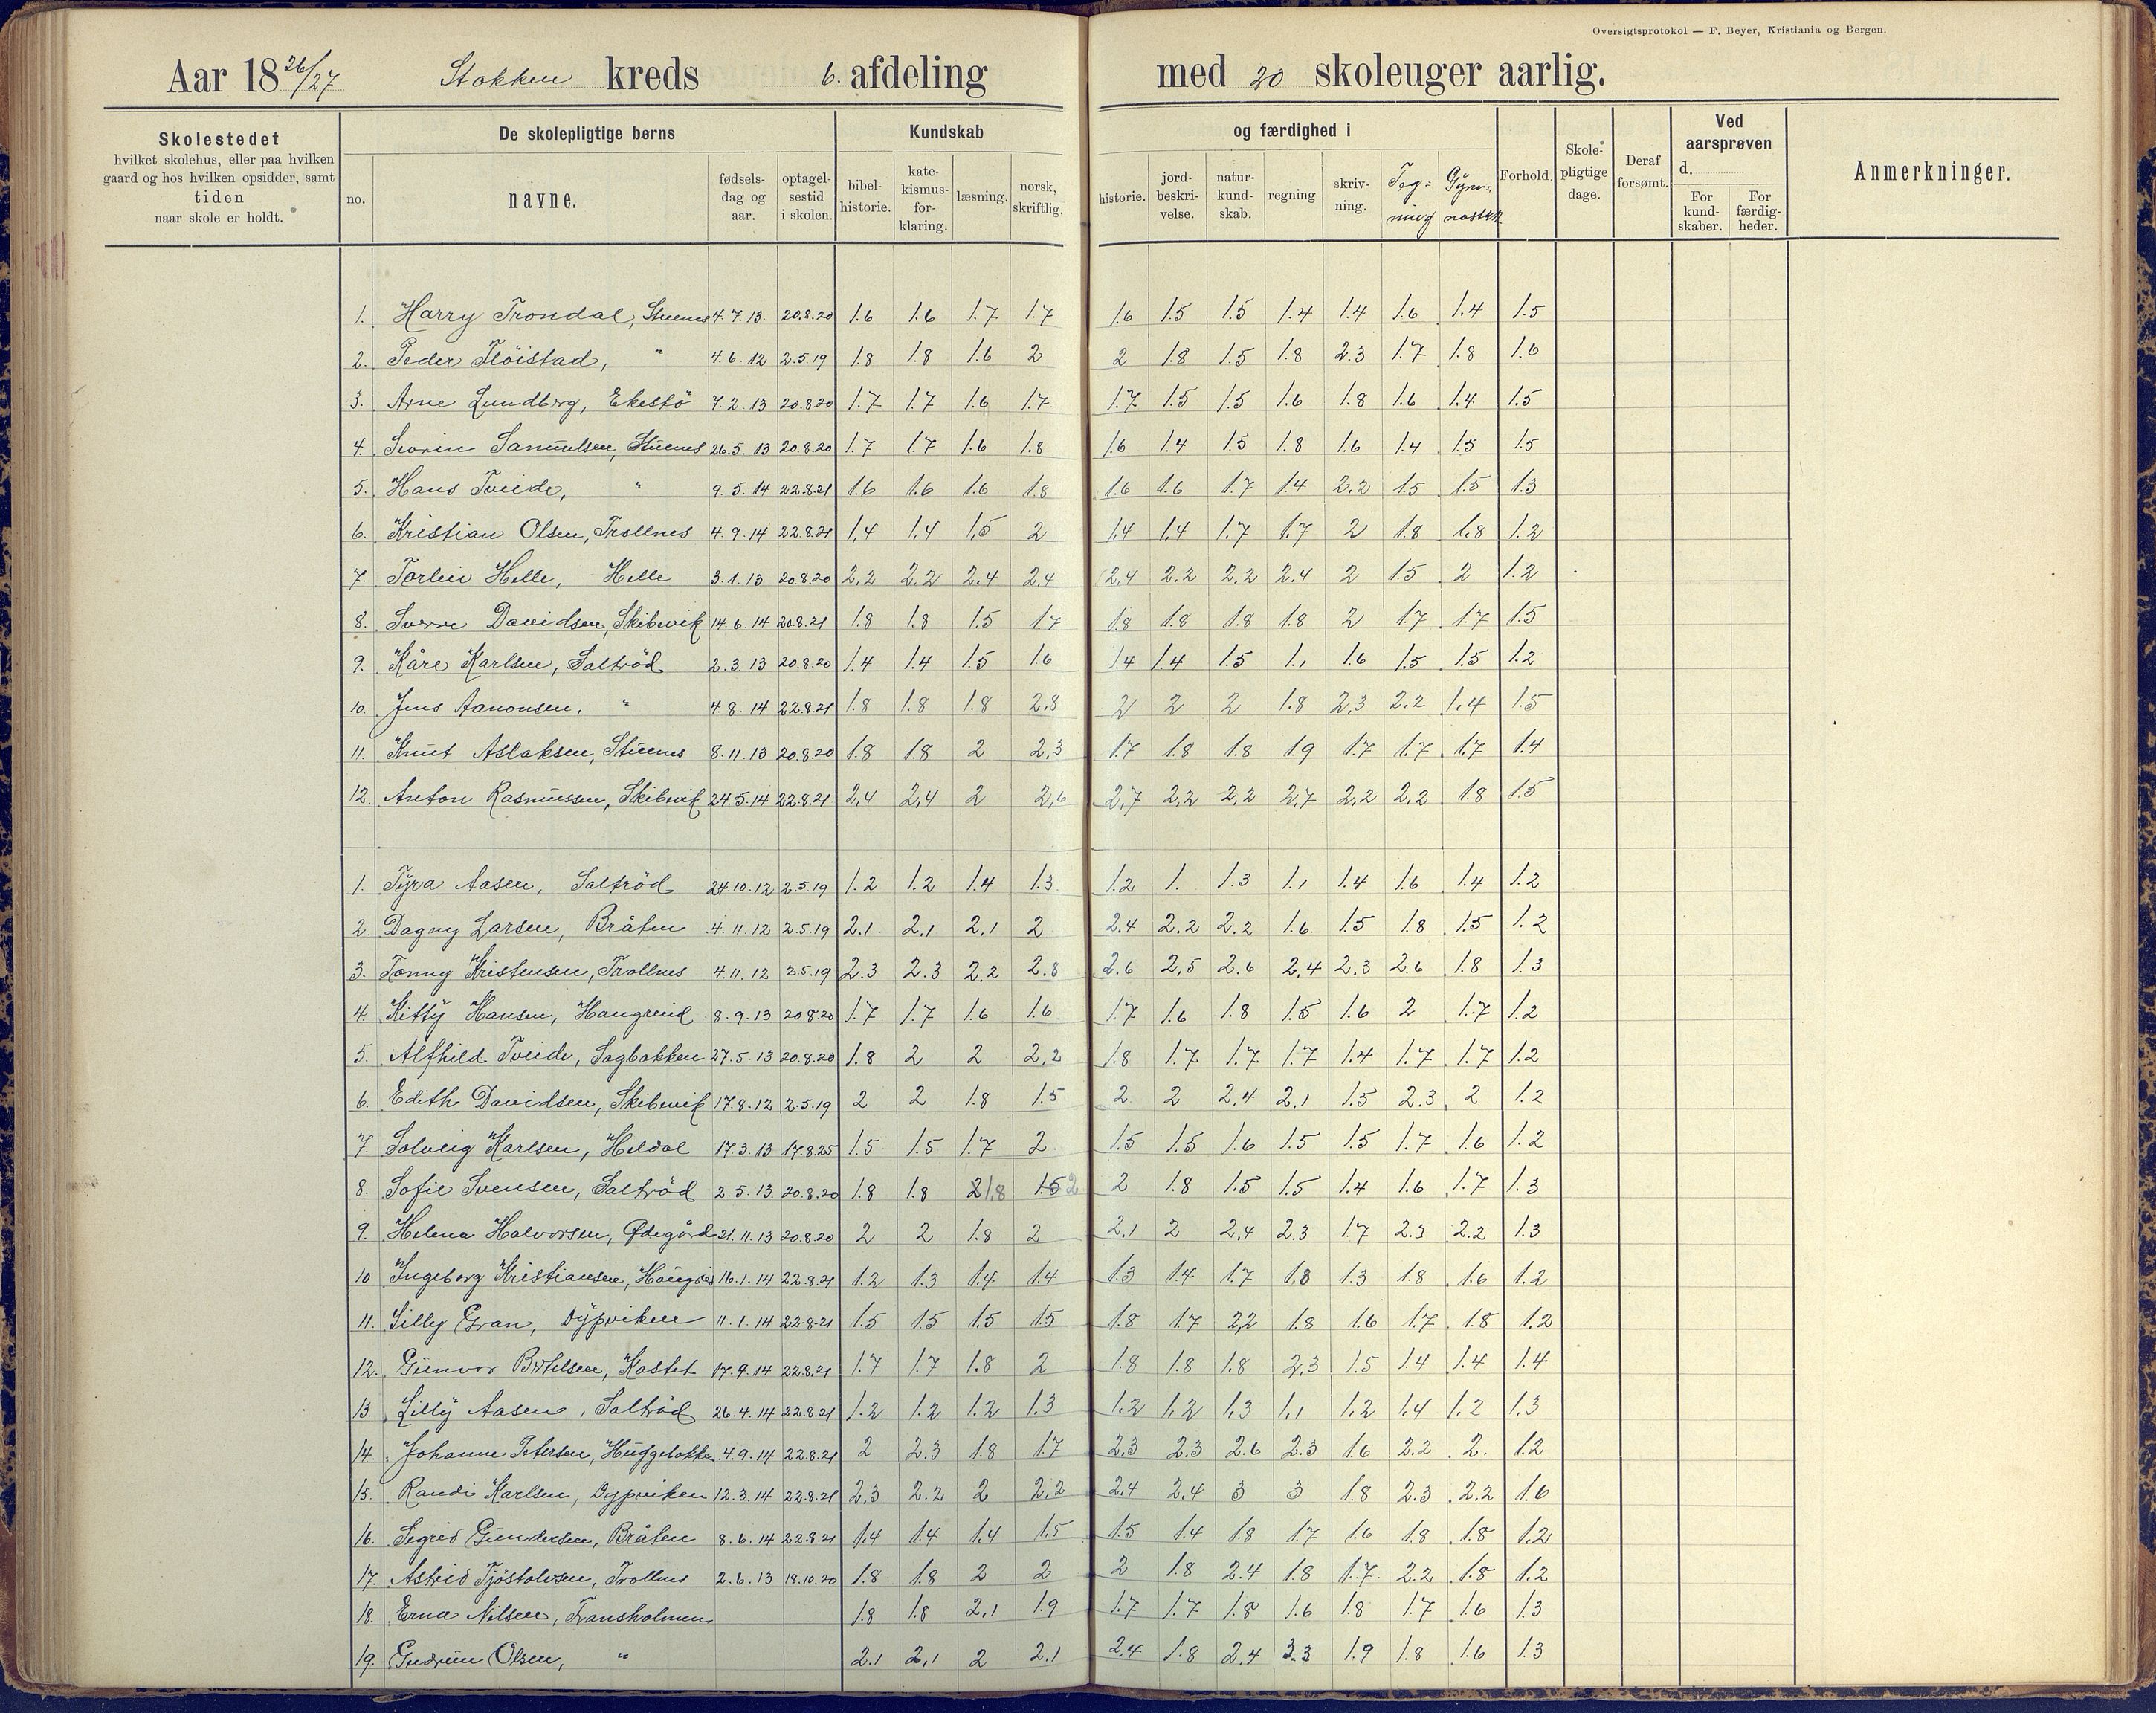 Oversigtsprotokol — F. Beyer, Kristiania og Bergen.
Aar 18 26/27 Stokken kreds 6. afdeling med 20 skoleuger aarlig.
Skolestedet
hvilket skolehus, eller paa hvilken
gaard og hos hvilken opsidder, samt
tiden
naar skole er holdt.
De skolepligtige børns
no. navne. fødsels-dag og aar. optagel-sestid i skolen.
Kundskab og færdighed i
bibel-historie. kate-kismus-for-klaring. læsning. norsk, skriftlig. historie. jord-beskri-velse. natur-kund-skab. regning skriv-ning. Teg-ning Gym-nastik
Forhold. Skole-pligtige dage. Deraf forsømt.
Ved aarsprøven d.
For kund-skaber. For færdig-heder.
Anmerkninger.
1. Harry Trondal, Stuenes 4.7.13. 20.8.20 1.6 1.6 1.7 1.7 1.6 1.5 1.5 1.4 1.4 1.6 1.4 1.5
2. Peder Flöistad, " 4.6.12 2.5.19 1.8 1.8 1.6 2 2 1.8 1.5 1.8 2.3 1.7 1.8 1.6
3. Arne Lundberg, Ekestö 7.2.13 20.8.20 1.7 1.7 1.6 1.7 1.7 1.5 1.5 1.6 1.8 1.6 1.4 1.5
4. Severin Samuelsen, Stuenes 26.5.13 20.8.20 1.7 1.7 1.6 1.8 1.6 1.4 1.5 1.8 1.6 1.4 1.5 1.5
5. Hans Tveide, " 9.5.14 22.8.21 1.6 1.6 1.6 1.8 1.6 1.6 1.7 1.4 2.2 1.5 1.5 1.3
6. Kristian Olsen, Trollnes 4.9.14 22.8.21 1,4 1,4 1,5 2 1,4 1,4 1.7 1,7 2 1.8 1.8 1.2
7. Torleiv Helle, Helle 3.1.13 20.8.20 2.2 2.2 2.4 2.4 2,4 2.2 2.2 2.4 2 1.5 2 1.2
8. Sverre Davidsen, Skibsvik 14.6.14 20.8.21 1.8 1.8 1.5 1.7 1.8 1.8 1.8 1.8 2 1.7 1.7 1.5
9. Kåre Karlsen, Saltröd 2.3.13 20.8.20 1.4 1.4 1.5 1.6 1.4 1.4 1.5 1.1 1.6 1.5 1.5 1.2
10. Jens Aanonsen, " 4.8.14 22.8.21 1.8 1.8 1.8 2.8 2 2 2 1.8 2.3 2.2 1.4 1.5
11. Knut Aslaksen, Stuenes 8.11.13 20.8.20 1.8 1.8 2 2.3 1.7 1.8 1.8 1.9 1.7 1.7 1.7 1.4
12. Anton Rasmussen, Skibsvik 24.5.14 22.8.21 2,4 2,4 2 2,6 2,7 2,2 2,2 2,7 2,2 2,2 1.8 1.5
1. Tyra Aasen, Saltröd 24.10.12 2.5.19 1.2 1.2 1.4 1.3 1.2 1. 1.3 1.1 1.4 1.6 1.4 1.2
2. Dagny Larsen, Bråten 4.11.12 2.5.19 2.1 2.1 2.1 2 2.4 2.2 2.2 1.6 1.5 1.8 1.5 1.2
3. Tonny Kristensen, Trollnes 4.11.12 2.5.19 2.3 2.3 2.2 2.8 2.6 2,5 2.6 2,4 2.3 2.6 1.8 1.3
4. Kitty Hansen, Haugreid 8.9.13 20.8.20 1.7 1.7 1.6 1.6 1.7 1.6 1.8 1.5 1.6 2 1.7 1.2
5. Alfhild Tveide, Sagbakken 27.5.13 20.8.20 1.8 2 2 2,2 1.8 1.7 1.7 1.7 1.4 1.7 1.7 1.2
6. Edith Davidsen, Skibsvik 17.8.12 2.5.19 2 2 1.8 1.5 2 2 2.4 2.1 1.5 2.3 2 1.2
7. Solveig Karlsen, Heldal 17.3.13 17.8.25 1.5 1.5 1.7 2. 1.5 1.5 1.6 1.5 1.5 1.7 1.6 1.2
8. Sofie Svensen, Saltröd 2.5.13 20.8.20 1.8 1.8 2 1.8 1.5 2 2 1.8 1.5 1.5 1.4 1.6 1.7 1.3
9. Helena Halvorsen, Ødegård 21.11.13 20.8.20 2 2 1.8 2 2.1 2 2.4 2.3 1.7 2.3 2.2 1.3
10 Ingeborg Kristiansen, Haugreid 16.1.14 22.8.21 1.2 1.3 1.4 1.4 1.3 1.4 1.7 1.8 1.3 1.8 1.6 1.2
11. Lilly Gran, Dypviken 11.1.14 22.8.21 1.5 1.5 1.5 1.5 1.8 1.7 2,2 1.8 1.6 1.7 1.8 1.2
12. Gunvor Bertelsen, Kastet 17.9.14 22.8.21 1.7 1.7 1.8 2 1.8 1.8 1.8 2,3 1.5 1.4 1.4 1.4
13. Lilly Aasen, Saltröd 26.4.14 22.8.21 1.2 1.2 1.2 1.3 1.2 1,2 1,3 1,1 1.2 1,4 1.2 1.3
14. Johanne Petersen, 4.9.14 22.8.21 2 2.3 1.8 1.7 2,3 2.3 2.6 2.3 1.6 2.2 2. 1.2
15. Randi Karlsen, Dypviken 12.3.14 22.8.21 2,3 2.2 2 2,2 2,4 2.4 3 3 1.8 2.3 2.2 1.6
16. Sigrid Gundersen, Bråten 8.6.14 22.8.21 1.4 1.4 1.4 1.5 1.5 1.4 1.8 1.7 1.6 1.8 1.8 1.2
17. Astrid Tjöstolvsen, Trollnes 2.6.13 18.10.20 1.8 1.8 2 2 2 1.8 2.4 1.8 1.7 2.2 1.8 1.2
18. Erna Nilsen, Fransholmen 1.8 1.8 2.1 1.9 1.7 1.7 1.8 1.6 1.8 1.7 1.6 1.3
19. Gudrun Olsen, " 2.1 2.1 2 2.1 2.4 1.8 2.4 3.3 1.9 1.8 1.6 1.3